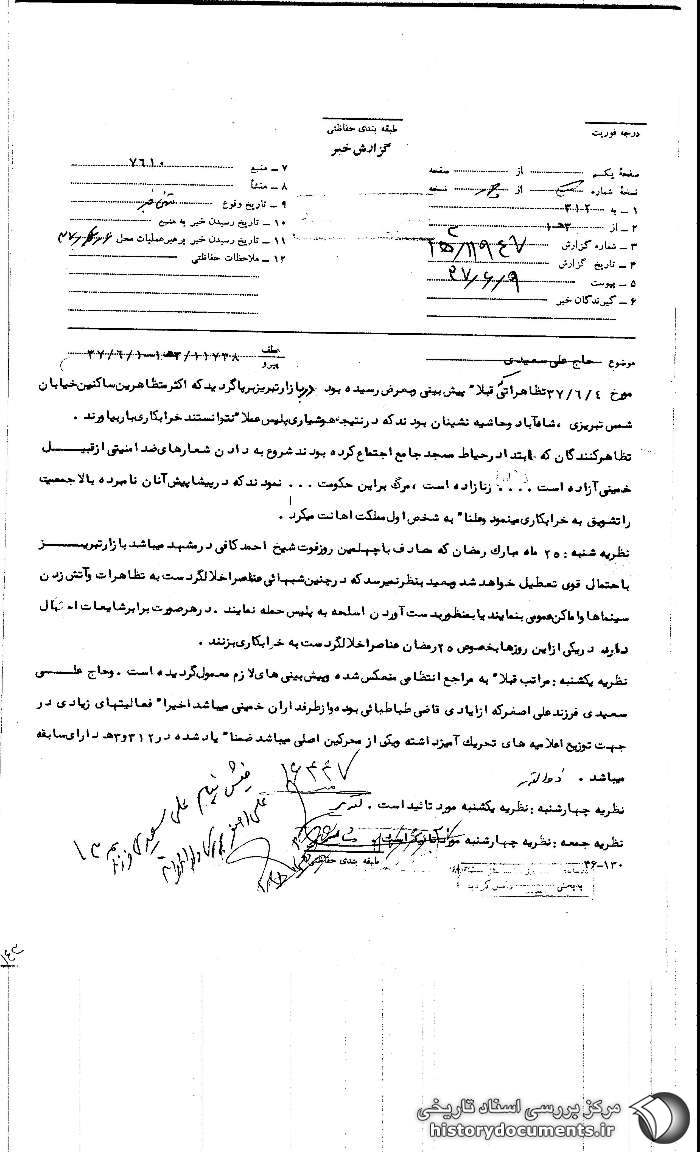 درجه فوریت
طبقه بندی حفاظتی
گزارش خبر
صفحهٔ یکم از صفحه
نسخهٔ شماره از نسخه
۱ ـ به ۳۱۲
۲ ـ از ۳هـ۱
۳ ـ شماره گزارش
۴ ـ تاریخ گزارش ۳۷/۶/۹
۵ ـ پیوست
۶ ـ گیرندگان خبر
۷ ـ منبع ۷۶۱۰
۸ ـ منشأ
۹ ـ تاریخ وقوع
۱۰ ـ تاریخ رسیدن خبر به منبع
۱۱ ـ تاریخ رسیدن خبر برهبر عملیات محل
۱۲ ـ ملاحظات حفاظتی
موضوع حاج علی سعیدی
عطف
پیرو
مورخ ۳۷/۶/۴ تظاهراتی که قبلا" پیش بینی وبعرض رسیده بود در بازارتبریز برپا گردید که اکثر متظاهرین ساکنین خیابان
شمس تبریزی ، شاه آباد وحاشیه نشینان بودند که درنتیجه هوشیاری پلیس عملا" نتوانستند خرابکاری باربیاورند .
تظاهرکنندگان که ابتدا درحیاط مسجد جامع اجتماع کرده بودند شروع به دادن شعارهای ضد امنیتی ازقبیل
خمینی آزاده است .... زنازاده است ، مرگ براین حکومت ... نمودند که درپیشاپیش آنان نامبرده بالا جمعیت
را تشویق به خرابکاری مینمود وعلنا" به شخص اول مملکت اهانت میکرد .
نظریه شنبه : ۲۵ ماه مبارک رمضان که مصادف با چهلمین روزفوت شیخ احمدکافی درمشهد میباشد بازارتبریز
با احتمال قوی تعطیل خواهد شد وبعید بنظر نمیرسد که درچنین شبهائی عناصر اخلالگر دست به تظاهرات وآتش زدن
سینماها واماکن عمومی بنمایند یا بمنظور بدست آوردن اسلحه به پلیس حمله نمایند . درهرصورت برابر شایعات احتمال
دارد دریکی ازاین روزها بخصوص ۲۵ رمضان عناصر اخلالگر دست به خرابکاری بزنند .
نظریه یکشنبه : مراتب قبلا" به مراجع انتظامی منعکس شده وپیش بینی های لازم معمول گردیده است . وحاج علی
سعیدی فرزند علی اصغر که ازایادی قاضی طباطبائی بوده وازطرفداران خمینی میباشد اخیرا" فعالیتهای زیادی در
جهت توزیع اعلامیه های تحریک آمیز داشته ویکی از محرکین اصلی میباشد ضمنا" یادشده در ۳۱۲ و۳هـ دارای سابقه
میباشد .
نظریه چهارشنبه : نظریه یکشنبه مورد تائید است .
نظریه جمعه : نظریه چهارشنبه مورد تائید است .
طبقه بندی حفاظتی
۳۶-۱۳۰
مرکز بررسی اسناد تاریخی
historydocuments.ir